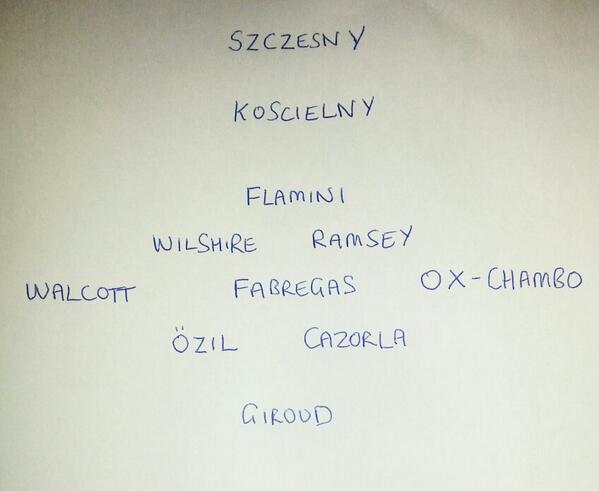 SZCZESNY
KOSCIELNY
FLAMINI
WILSHIRE RAMSEY
WALCOTT FABREGAS OX-CHAMBO
ÖZIL CAZORLA
GIROUD